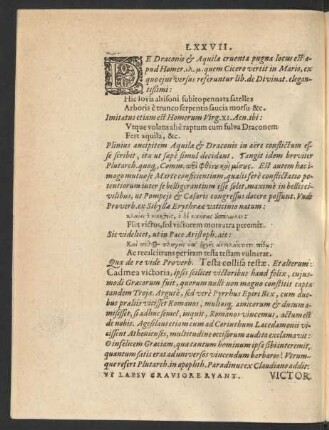 LXXVII.
DE Draconis & Aquilæ cruenta pugna locus est a-
pud Homer. quem Cicero vertit in Mario, ex
quo ejus versus referuntur lib. de Divinat. elegan-
tissimi:
Hic Iovis altisoni subito pennata satelles
Arboris è trunco serpentis saucia morsu &c.
Imitatus etiam est Homerum Virg. XI. Aen. ibi:
Utque volans altè raptum cum fulva Draconem
Fert aquila, &c.
Plinius ancipitem Aquilæ & Draconis in aere conflictum es-
se scribit, ita ut sæpè simul decidant. Tangit idem breviter
Plutarch. quoq, Est autem hæc i-
mago mutuo se Marte conficientium, qualis ferè conflictatio po-
tentiorum inter se belligerantium esse solet, maximè in bellis ci-
vilibus, ut Pompeji & Cæsaris congressus docere possunt. Vnde
Proverb. ex Sibyllæ Erythrææ vaticinio natum:
Flet victus, sed victorem monumenta peremit.
Sic videlicet, ut in Pace Aristoph. ait:
Ac recalcitrans perirem testa testam vulnerat.
Qua de re vide Proverb. Testa collisa testæ. Et alterum:
Cadmea victoria, ipsis scilicet victoribus haud felix, cujus-
modi Græcorum fuit, quorum nulli non magno constitis capta
tandem Troja. Arguit, sed verè Pyrrhus Epiri Rex, cum duo-
bus præliis vicisset Romanos, multosq, amicorum & ducum a-
misisset, si adhuc semel, inquit, Romanos vincemus, actum est
de nobis. Agesilaus etiam cum ad Corinthum Lacedæmonii vi-
cissent Athenienses, multitudine occisorum audita exclamavit:
O infelicem Græciam, quæ tantum hominum ipsa sibi interemit,
quantum satis erat ad universos vincendum barbaros! Vtrum-
que refert Plutarch. in apophth. Paradinus ex Claudiano addit:
VT LAPSV GRAVIORE RVANT.
VICTOR